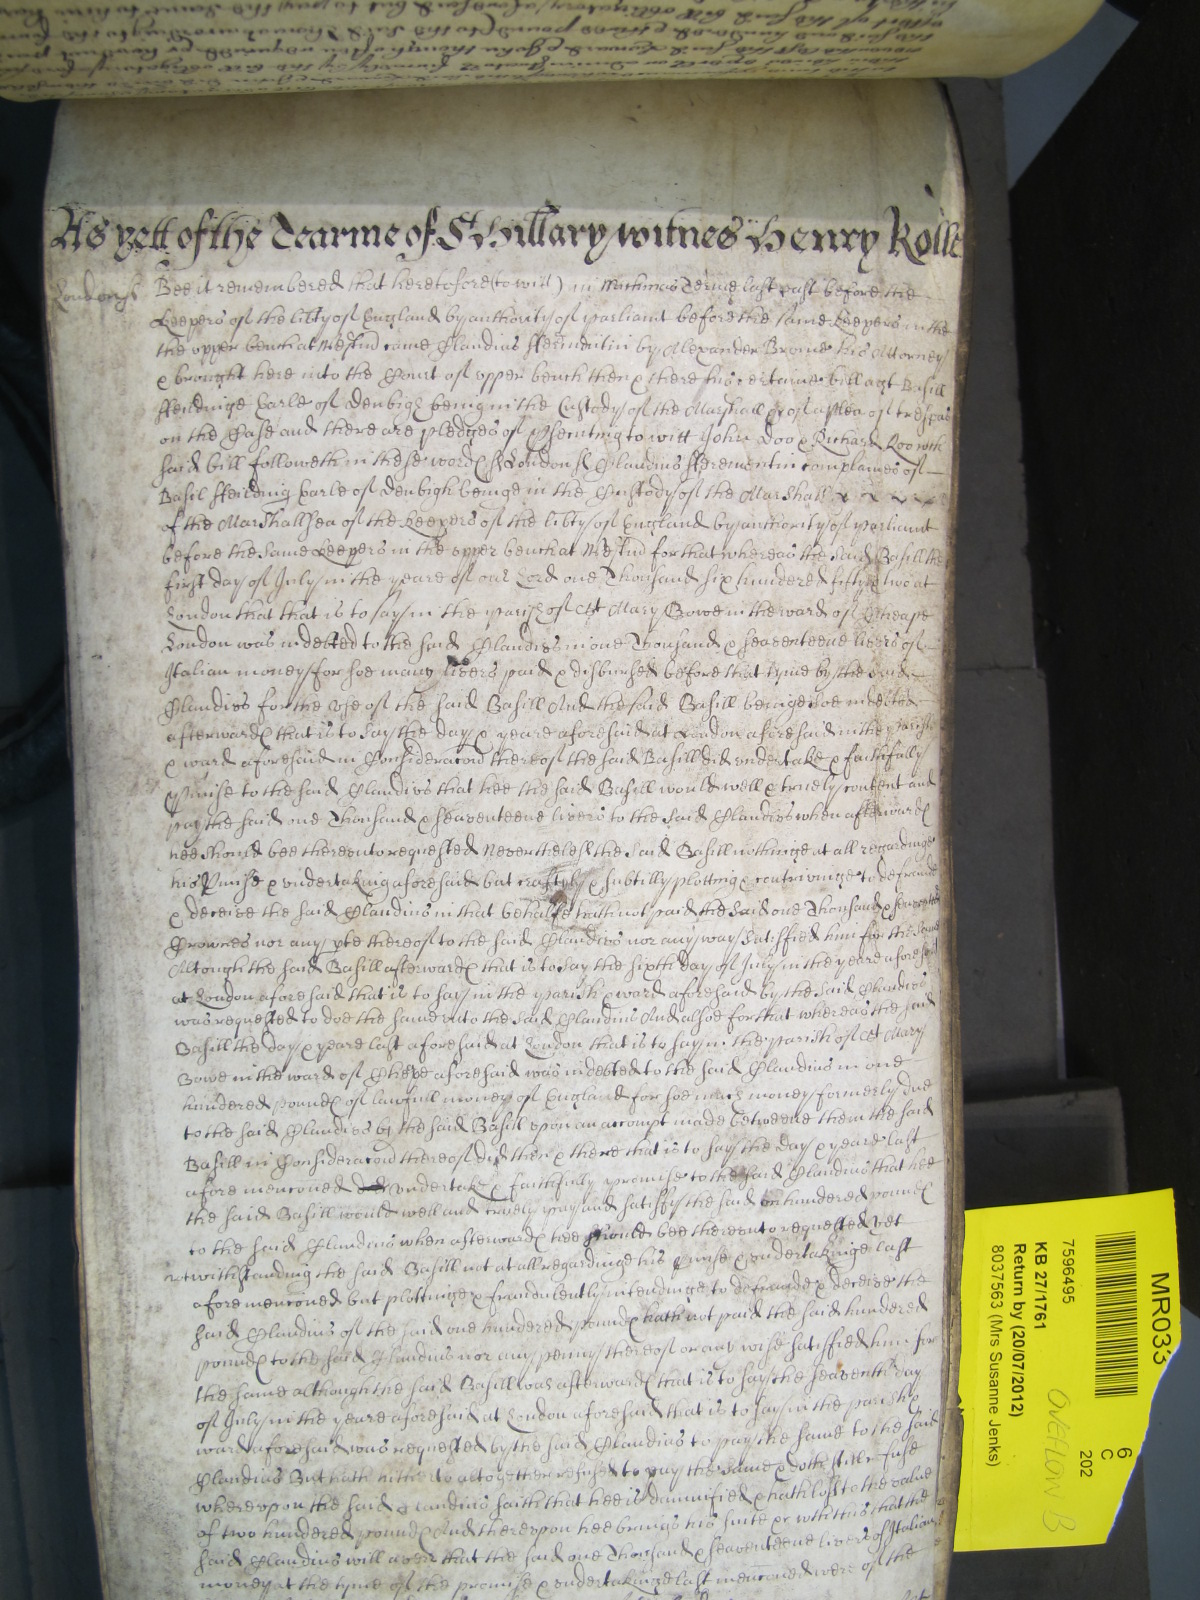 As yett of the Tearme of St Hillary witnes Henry Rolle
London ss Bee it remembred that heretofore (to witt) in Michmas Terme last past before the
Keepers of the libty of England by authority of parliamt before the same Keepers in the
the upper bench at Westmd came Claudius by Alexander Brome his Attorney
& brought here into the Court of upper bench then & there his certaine bill agt Basill
ffeildinge Earle of Denbigh being in the Custody of the Marshall &c of a plea of trespas
on the Case and there are pledges of psecuting to witt John Doo & Richard Roo wch
said bill followeth in these words ss London ss Claudius complaines of
Basil ffeilding Earle of Denbigh beinge in the Custody of the Marshall
of the Marshallsea of the Keepers of the libty of England by authority of parliamt
before the same Keepers in the upper bench at Westmd for that whereas the said Basill the
first day of July in the yeare of our Lord one Thousand six hundered fifty & two at
London that that is to say in the parish of St Mary Bowe in the ward of Cheape
London was indebted to the said Claudius in one Thousand & seaventeene livers of
Italian money for soe many livers paid & disbursed before that tyme by the said
Claudius for the use of the said Basill And the said Basill beinge soe indebted
afterwards that is to say the day & yeare aforesaid at London aforesaid in the parish
& ward aforesaid in Consideracon thereof the said Basill did undertake & faithfully
pmise to the said Claudius that hee the said Basill would well & truely content and
pay the said one Thousand & seaventeene livers to the said Claudius when afterwards
hee should bee thereunto requested Neverthelesse the said Basill nothinge at all regardinge
his pmise & undertaking aforesaid but craftyly & subtilly plotting & contrivinge to defraud
& deceive the said Claudius in that behalfe hath not paid the said one Thousand & seventeene
Crownes nor any pte thereof to the said Claudius nor any way satisfied him for the same
Altough the said Basill afterwards that is to say the sixth day of July in the yeare aforesaid
at London aforesaid that is to say in the parish & ward aforesaid by the said Claudius
was requested to doe the same unto the said Claudius And alsoe for that whereas the said
Basill the day & yeare last aforesaid at London that is to say in the parish of St Mary
Bowe in the ward of Cheape aforesaid was indebted to the said Claudius in one
hundered pounds of lawfull money of England for soe much money formerly due
to the said Claudius by the said Basill upon an accompt made betweene them the said
Basill in Consideracon thereof did then & there that is to say the day & yeare last
afore menconed undertake & faithfully promise to the said Claudius that hee
the said Basill would well and truely pay and satisfy the said on hundered pounds
to the said Claudius when afterwards hee should bee thereunto requested yet
notwithstanding the said Basill not at all regardinge his pmise & undertakinge last
afore menconed but plottinge & fraudulently intendinge to defraude & deceive the
said Claudius of the said one hundered pounds hath not paid the said hundered
pounds to the said Claudius nor any penny thereof or any wise satisfied him for
the same although the said Basill was afterwards that is to say the seaventh day
of July in the yeare aforesaid at London aforesaid that is to say in the parish &
ward aforesaid was requested by the said Claudius to pay the same to the said
Claudius But hath hitherto altogether refused to pay the same & doth still refuse
whereupon the said Claudius saith that hee is damnified & hath losse to the value
of two hundered pounds And thereupon hee brings his suite &c with this that the
said Claudius will averr that the said one Thousand & seaventeene livers of Italian
money at the tyme of the promise & undertakinge last menconed were of the
MR033
6
C
202
7596495
KB 27/1761
Return by (20/07/2012)
8037563 (Mrs Susanne Jenks)
OVERFLOW B